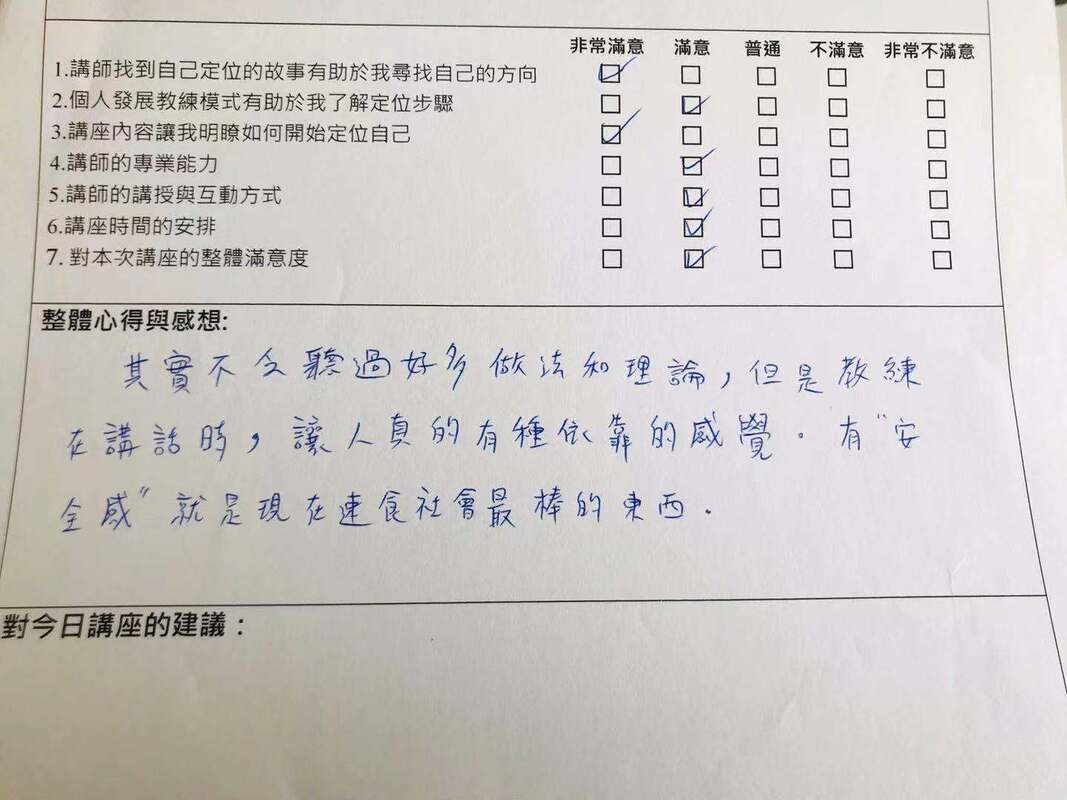 非常滿意 滿意 普通 不滿意 非常不滿意
1.講師找到自己定位的故事有助於我尋找自己的方向 ☑ □ □ □ □
2.個人發展教練模式有助於我了解定位步驟 □ ☑ □ □ □
3.講座內容讓我明瞭如何開始定位自己 ☑ □ □ □ □
4.講師的專業能力 □ ☑ □ □ □
5.講師的講授與互動方式 □ ☑ □ □ □
6.講座時間的安排 □ ☑ □ □ □
7. 對本次講座的整體滿意度 □ ☑ □ □ □
整體心得與感想:
其實不今聽過好多做法和理論,但是教練
在講話時,讓人真的有種依靠的感覺。有"安
全感"就是現在速食社會最棒的東西.
對今日講座的建議：